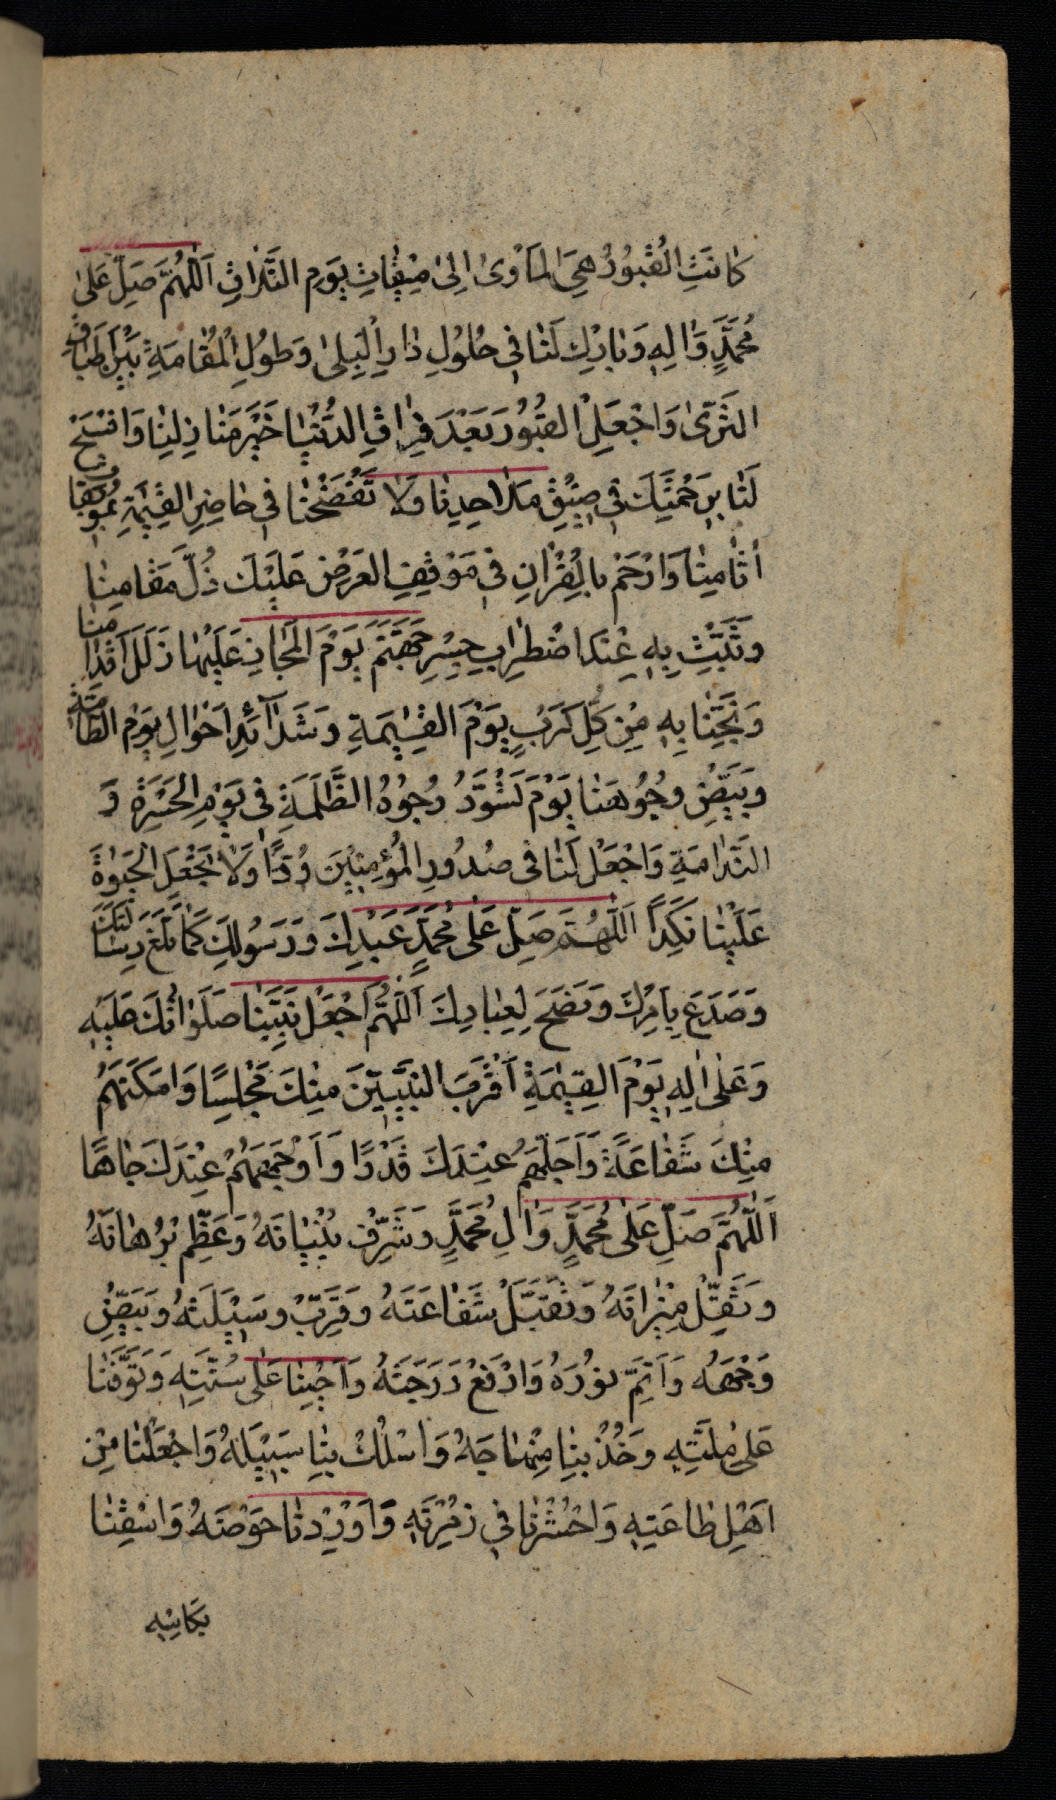 كَانَتِ الْقُبُورُ هِيَ الْمَاوٰى اِلٰى مِيقَاتِ يَوْمِ التَّلَاقِ اَللّٰهُمَّ صَلِّ عَلٰى
مُحَمَّدٍ وَاٰلِهِ وَبَارِكْ لَنَا فِي حُلُولِ دَارِ الْبِلٰى وَطُولِ الْمُقَامَةِ بَيْنَ اَطْبَاقِ
الثَّرٰى وَاجْعَلِ القُبُورَ بَعْدَ فِرَاقِ الدُّنْيَا خَيْرَ مَنَازِلِنَا وَافْسَحْ
لَنَا بِرَحْمَتِكَ فِي ضِيْقِ مَلَاحِدِنَا وَلَا تَفْضَحْنَا فِي حَاضِرِ القِيٰمَةِ بِمُوبِقَاتِ
اٰثَامِنَا وَارْحَمْ بِالْقُرْاٰنِ فِي مَوْقِفِ العَرْضِ عَلَيْكَ ذُلَّ مَقَامِنَا
وَثَبِّتْ بِهِ عِنْدَ اضْطِرَابِ جِسْرِ جَهَنَّمَ يَوْمَ الْمَجَازِ عَلَيْهَا زَلَلَ اَقْدَامِنَا
وَنَجِّنَا بِهِ مِنْ كُلِّ كَرْبٍ يَوْمَ القِيٰمَةِ وَشَدَآئِدِ اَحْوَالِ يَوْمِ الطَّامَّةِ
وَبَيِّضْ وُجُوهَنَا يَوْمَ تَسْوَدُّ وُجُوْهُ الظَّلَمَةِ فِي يَوْمِ الْحَسْرَةِ وَ
النَّدَامَةِ وَاجْعَلْ لَنَا فِي صُدُورِ الْمُؤْمِنِيْنَ وُدًّا وَلَا تَجْعَلِ الْحَيٰوةَ
عَلَيْنَا نَكَدًا اَللّٰهُمَّ صَلِّ عَلٰى مُحَمَّدٍ عَبْدِكَ وَرَسُولِكَ كَمَا بَلَّغَ رِسَالَتَكَ
وَصَدَعَ بِاَمْرِكَ وَنَصَحَ لِعِبَادِكَ اَللّٰهُمَّ اجْعَلْ نَبِيَّنَا صَلَوَاتُكَ عَلَيْهِ
وَعَلٰى اٰلِهِ يَوْمَ القِيٰمَةِ اَقْرَبَ النَّبِيِّيْنَ مِنْكَ مَجْلِسًا وَاَمْكَنَهُمْ
مِنْكَ شَفَاعَةً وَاَجَلَّهُمْ عِنْدَكَ قَدْرًا وَاَوْجَهَهُمْ عِنْدَكَ جَاهًا
اَللّٰهُمَّ صَلِّ عَلٰى مُحَمَّدٍ وَاٰلِ مُحَمَّدٍ وَشَرِّفْ بُنْيَانَهُ وَعَظِّمْ بُرْهَانَهُ
وَثَقِّلْ مِيْزَانَهُ وَتَقَبَّلْ شَفَاعَتَهُ وَقَرِّبْ وَسِيْلَتَهُ وَبَيِّضْ
وَجْهَهُ وَاَتِمَّ نُوْرَهُ وَارْفَعْ دَرَجَتَهُ وَاَحْيِنَا عَلٰى سُنَّتِهِ وَتَوَفَّنَا
عَلٰى مِلَّتِهِ وَخُذْ بِنَا مِنْهَاجَهُ وَاسْلُكْ بِنَا سَبِيْلَهُ وَاجْعَلْنَا مِنْ
اَهْلِ طَاعَتِهِ وَاحْشُرْنَا فِي زُمْرَتِهِ وَاَوْرِدْنَا حَوْضَهُ وَاسْقِنَا
بِكَاسِهِ